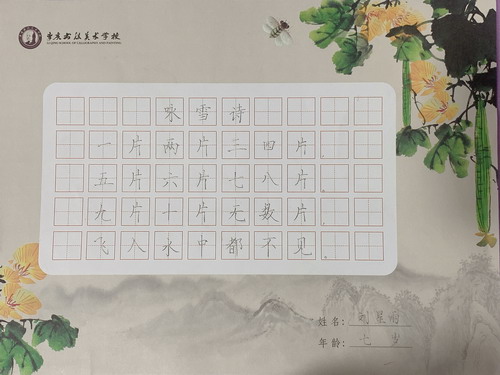 书法美术学校
咏雪诗
一片两片三四片。
五片六片七八片。
九片十片无数片。
飞入水中都不见。
姓名：刘星雨
年龄：七岁